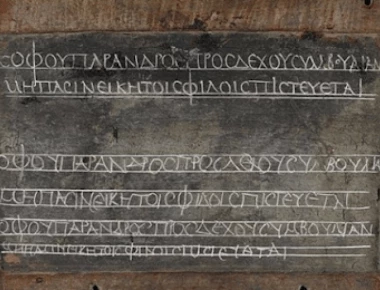 СΟΦΟΥΠΑΡΑΝΔΡΟСΠΡΟСΔΕΧΟΥСΥΜΒΟΥΛΙΑΝ
ΜΗΠΑСΙΝΕΙΚΗΤΟΙСΦΙΛΟΙСΠΙСΤΕΥΕΤΑΙ
СΟΦΟΥΠΑΡΑΝΔΡΟСΠΡΟСΔΕΧΟΥСΥΜΒΟΥΛΙΑ
ΜΗΠΑСΙΝΕΙΚΗΤΟΙСΦΙΛΟΙСΠΙСΤΕΥΕΤΑΙ
ΟΦΟΥΠΑΡΑΝΔΡΟСΠΡΟСΔΕΧΟΥСΥΜΒΟΥΛΙΑΝ
ΜΗΠΑСΙΝΕΙΚΗΤΟΙСΦΙΛΟΙСΠΙСΤΕΥΕΤΑΙ